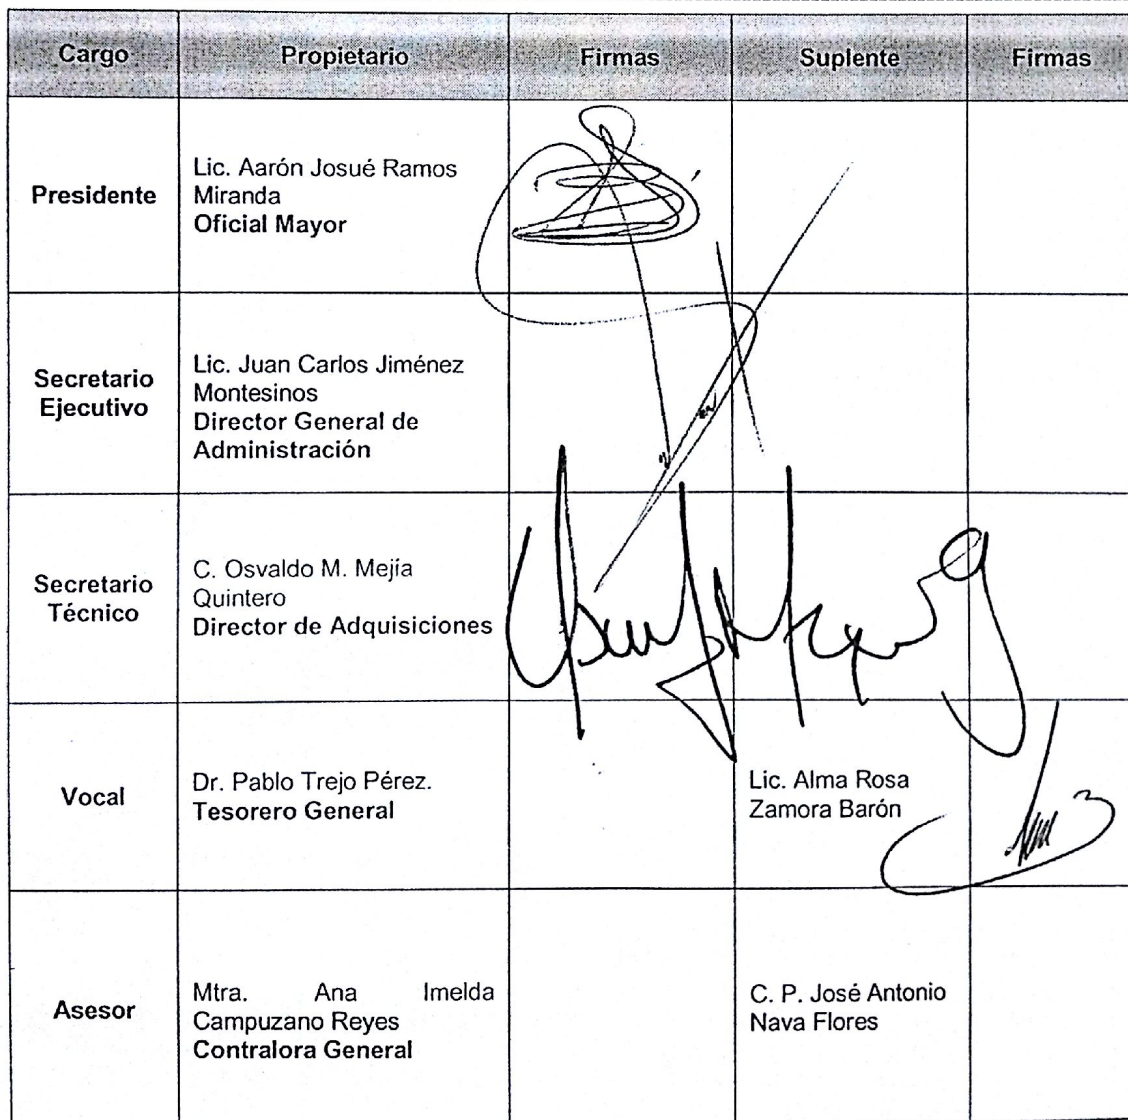 Cargo Propietario Firmas Suplente Firmas
Presidente
Lic. Aarón Josué Ramos
Miranda
Oficial Mayor
Secretario
Ejecutivo
Lic. Juan Carlos Jiménez
Montesinos
Director General de
Administración
Secretario
Técnico
C. Osvaldo M. Mejía
Quintero
Director de Adquisiciones
Vocal
Dr. Pablo Trejo Pérez.
Tesorero General
Lic. Alma Rosa
Zamora Barón
Asesor
Mtra. Ana Imelda
Campuzano Reyes
Contralora General
C. P. José Antonio
Nava Flores